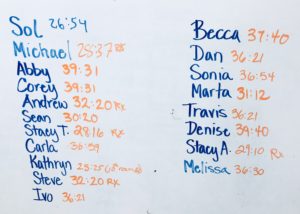 Sol 26:54
Michael 25:37 RX
Abby 39:31
Corey 39:31
Andrew 32:20 RX
Sean 30:20
Stacy T. 28:16 RX
Carla 36:59
Kathryn 25:25
Steve 32:20 RX
Ivo 36:21
Becca 37:40
Dan 36:21
Sonia 36:54
Marta 31:12
Travis 36:21
Denise 39:40
Stacy A. 29:10 RX
Melissa 36:30